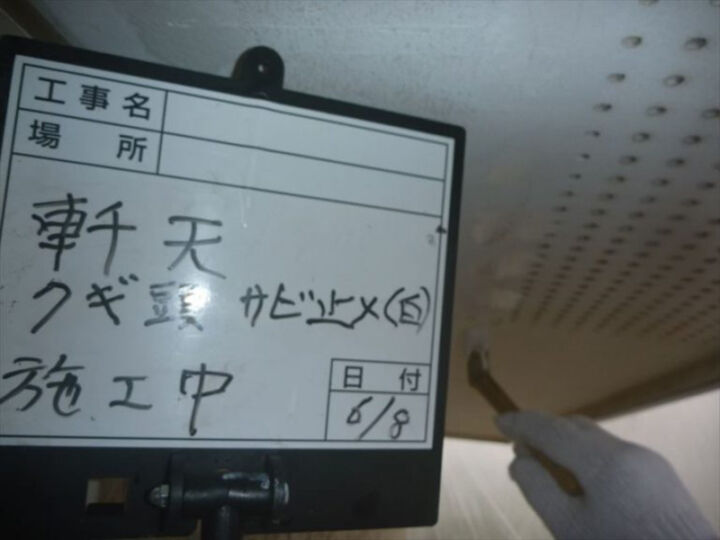 工事名
場所
軒天
クギ頭 サビ止メ(白)
施工中
日付
6/8